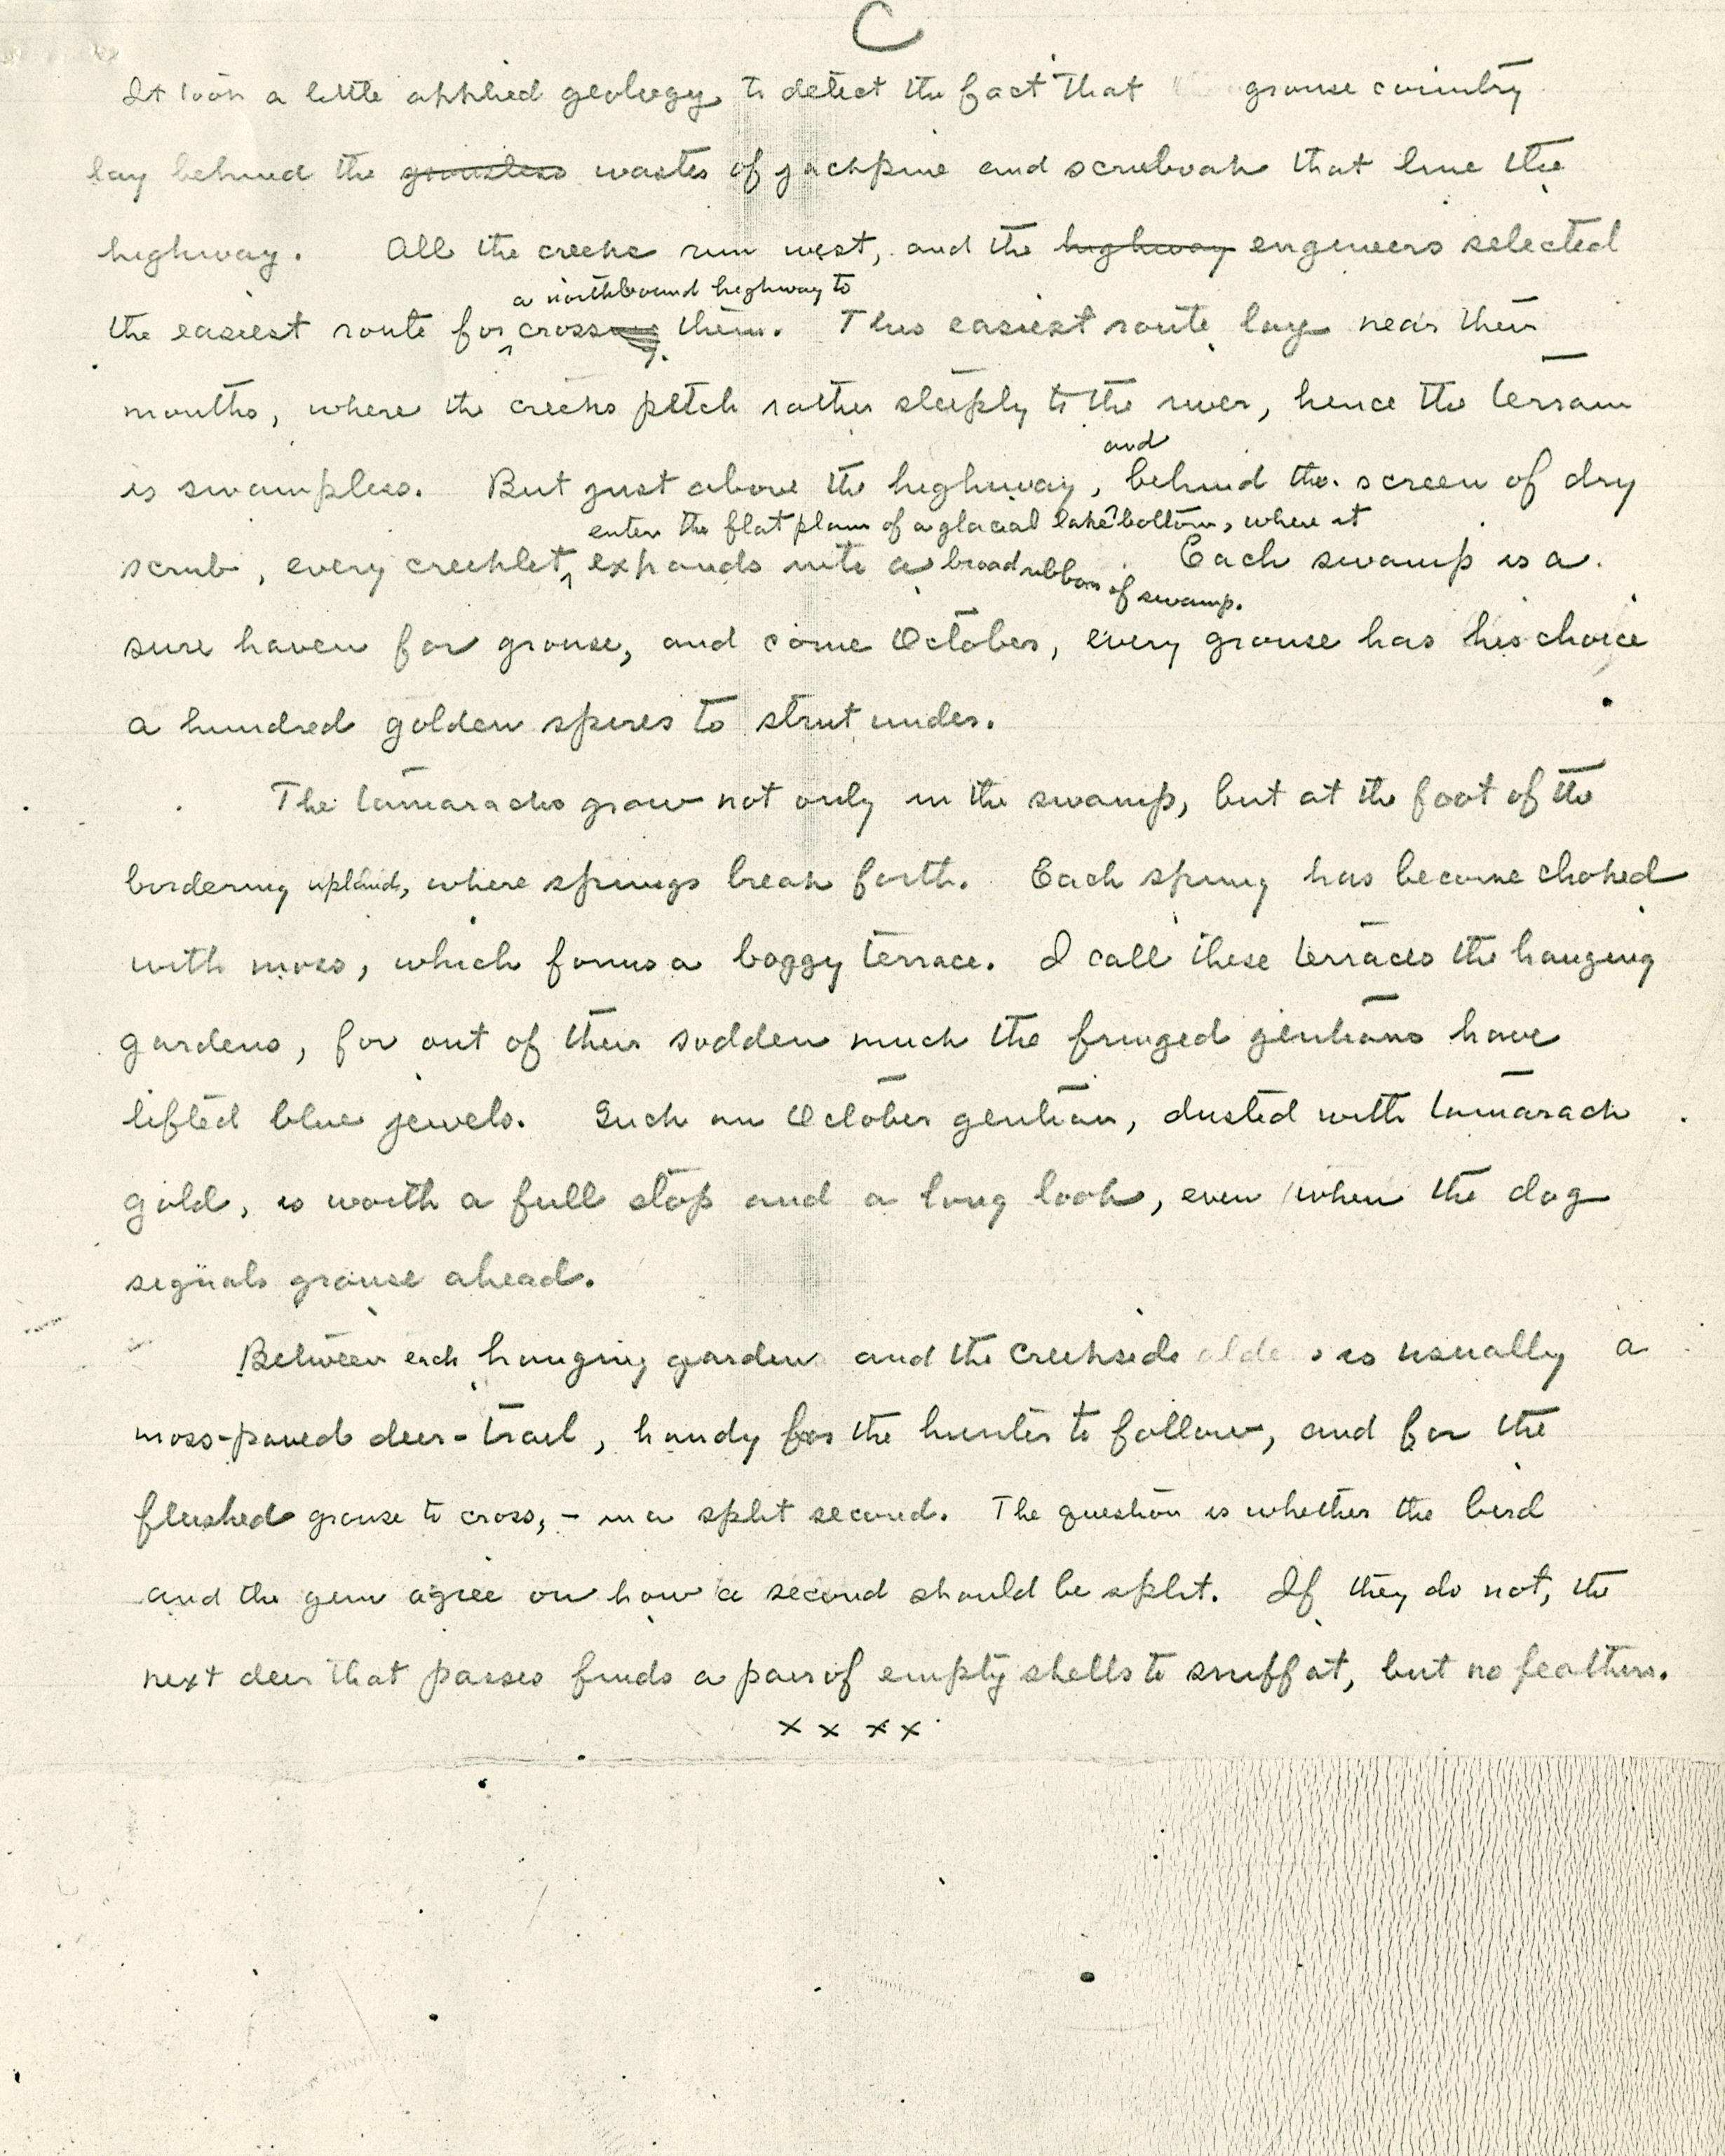 C
It took a little applied geology to detect the fact that the grouse country
lay behind the grouseless wastes of jackpine and scruboak that line the
highway. All the creeks run west, and the highway engineers selected
a northbound highway to
the easiest route for crossing them. This easiest route lay near their
mouths, where the creeks pitch rather steeply to the river, hence the terrain
and
is swampless. But just above the highway, behind the screen of dry
enters the flat plain of a glacial lake bottom, where it
scrub, every creeklet expands into a broad ribbon of swamp. Each swamp is a
sure haven for grouse, and come October, every grouse has his choice
a hundred golden spires to strut under.
The tamaracks grow not only in the swamp, but at the foot of the
bordering upland, where springs break forth. Each spring has become choked
with moss, which forms a boggy terrace. I call these terraces the hanging
gardens, for out of their sodden muck the fringed gentians have
lifted blue jewels. Such an October gentian, dusted with tamarack
gold, is worth a full stop and a long look, even when the dog
signals grouse ahead.
Between each hanging garden and the creekside alders is usually a
moss-paved deer-trail, handy for the hunter to follow, and for the
flushed grouse to cross, - in a split second. The question is whether the bird
and the gun agree on how a second should be split. If they do not, the
next deer that passes finds a pair of empty shells to sniff at, but no feathers.
x x x x